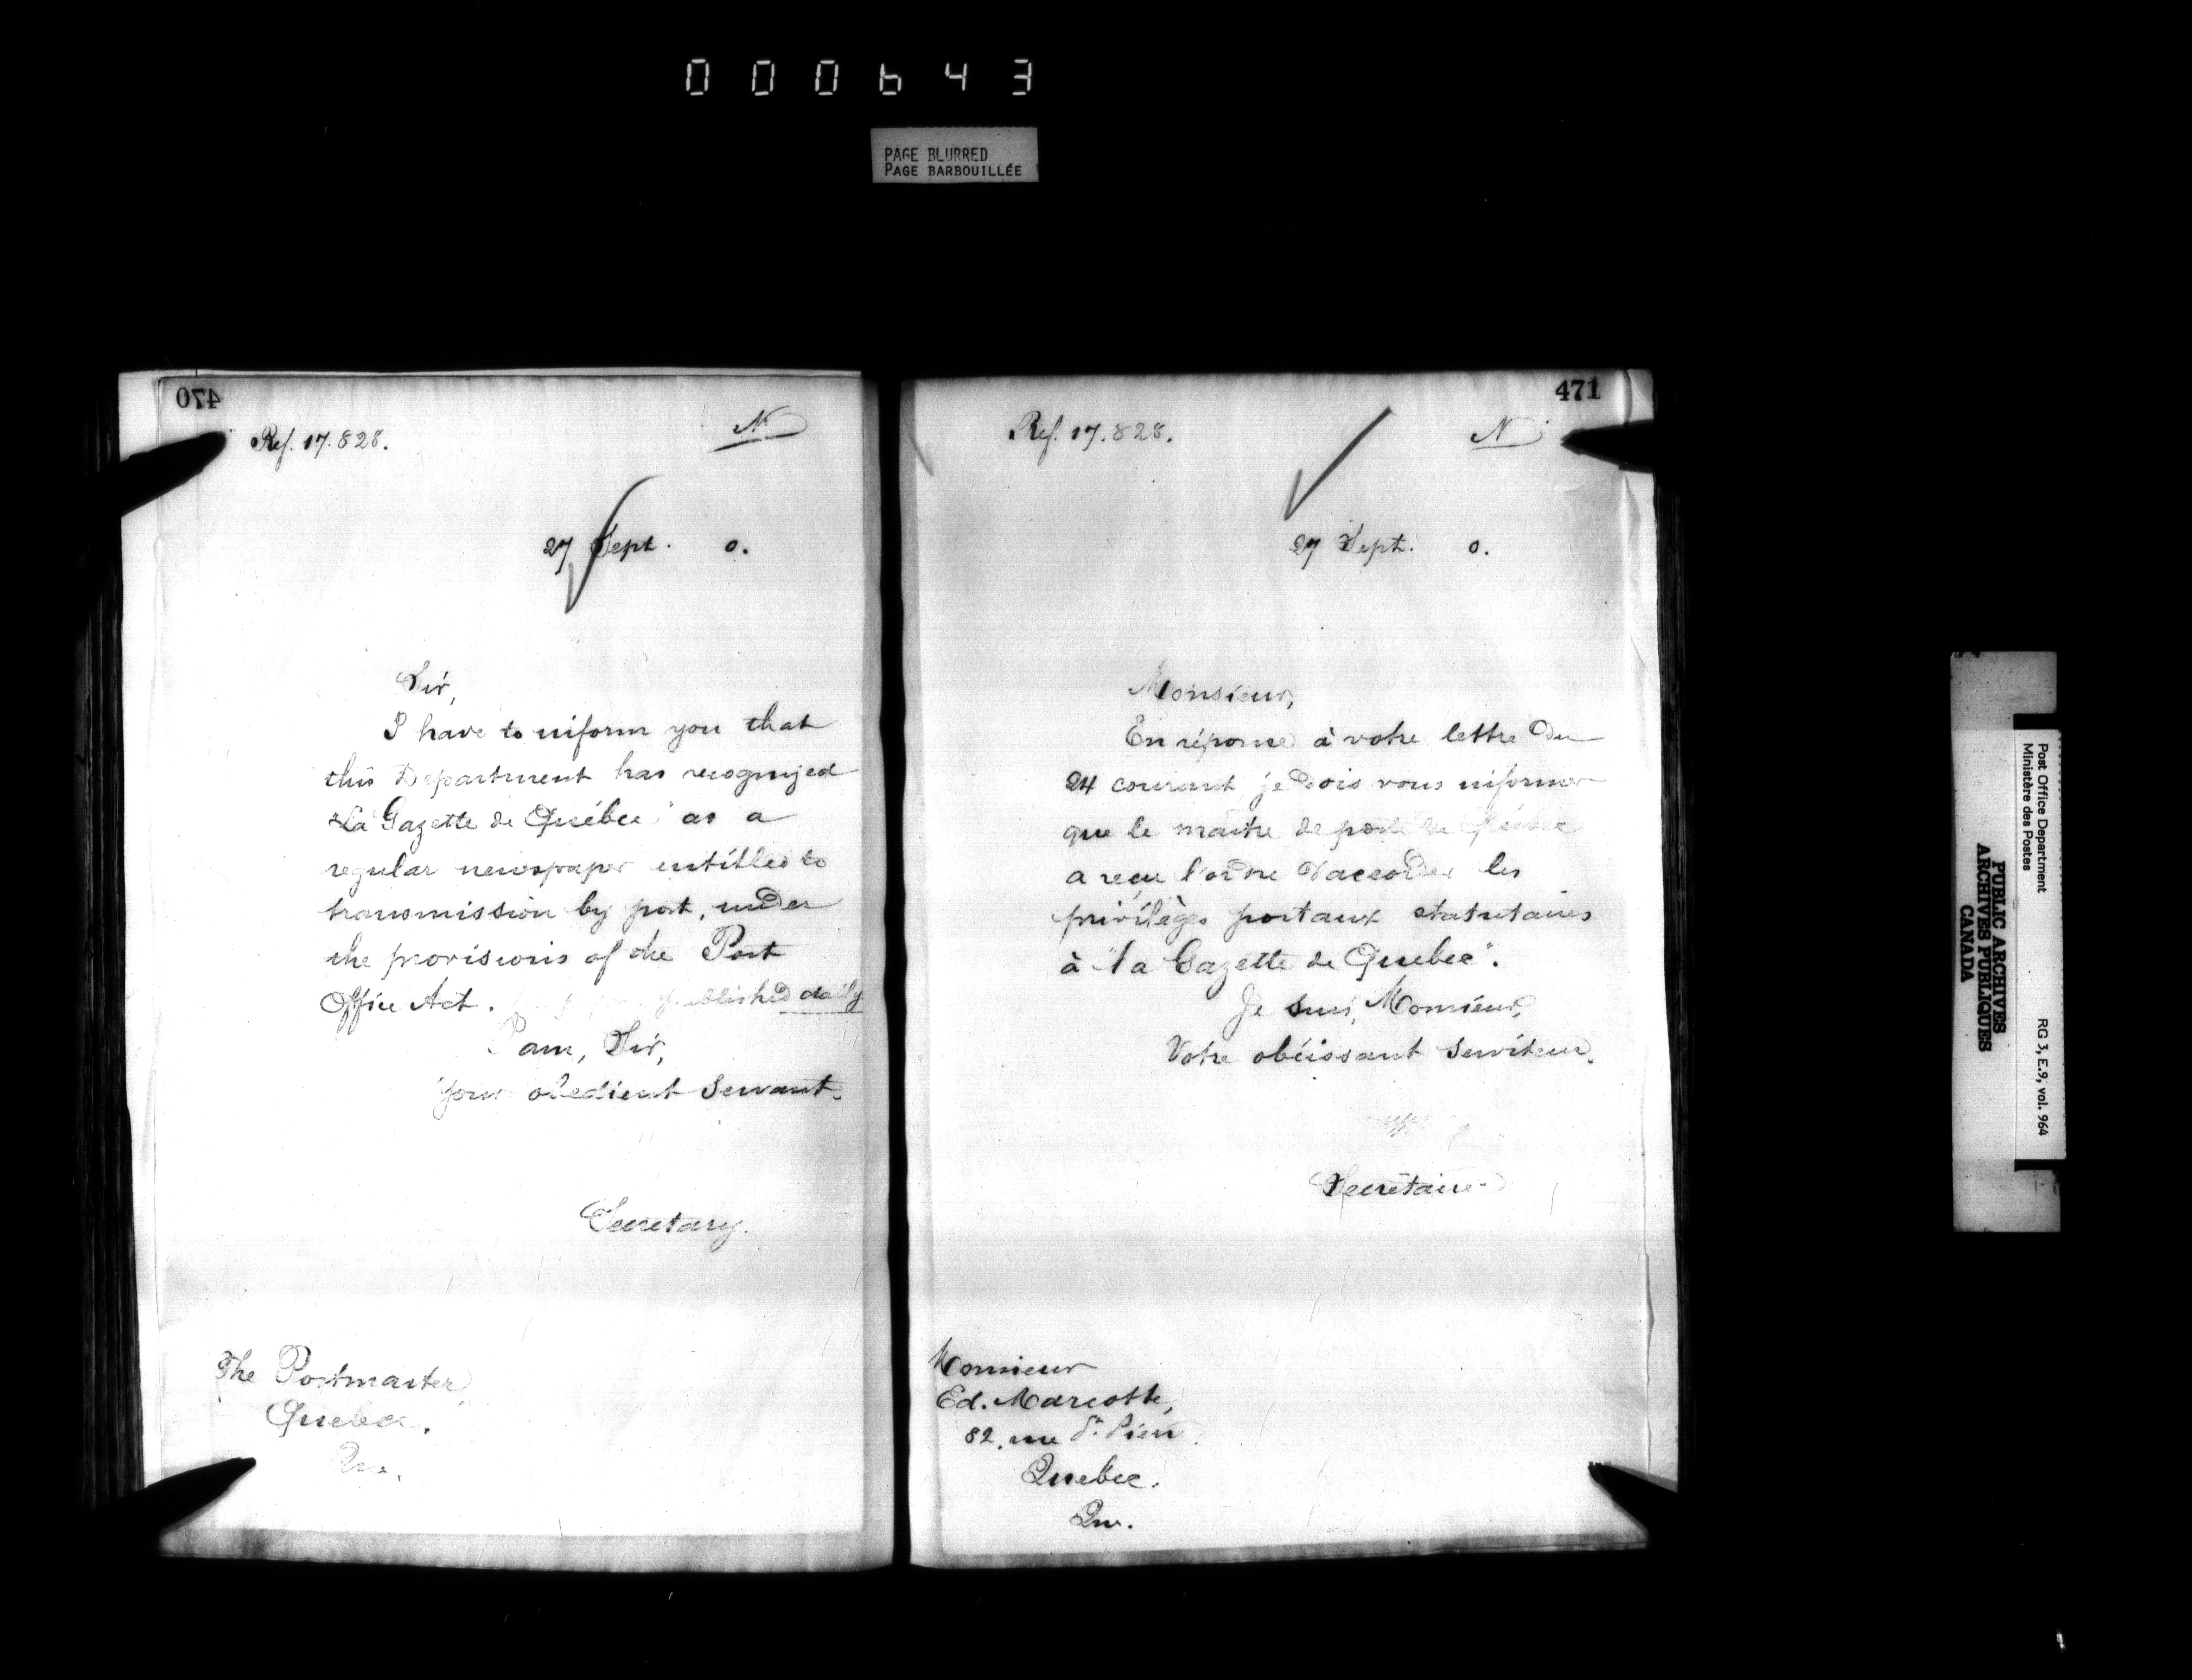 000643
PAGE BLURRED
PAGE BARBOUILLÉE
470
Ref. 17.828.
N
27 Sept. 0.
Sir,
I have to inform you that
this Department has recognized
"La Gazette de Québec" as a
regular newspaper entitled to
transmission by post, under
the provisions of the Post
Office Act. published daily
I am, Sir,
Your obedient Servant.
Secretary.
The Postmaster,
Quebec.
Que.
471
Ref. 17.828.
N
27 Sept. 0.
Monsieur,
En réponse à votre lettre du
24 courant je dois vous informer
que le maître de poste de Québec
a reçu l'ordre d'accorder les
privilèges postaux statutaires
à "la Gazette de Quebec".
Je suis, Monsieur,
Votre obéissant serviteur.
Secrétaire
Monsieur
Ed. Marcotte,
82, rue St. Pierre
Quebec.
Que.
Post Office Department
Ministère des Postes
RG 3, E.9, vol. 964
PUBLIC ARCHIVES
ARCHIVES PUBLIQUES
CANADA